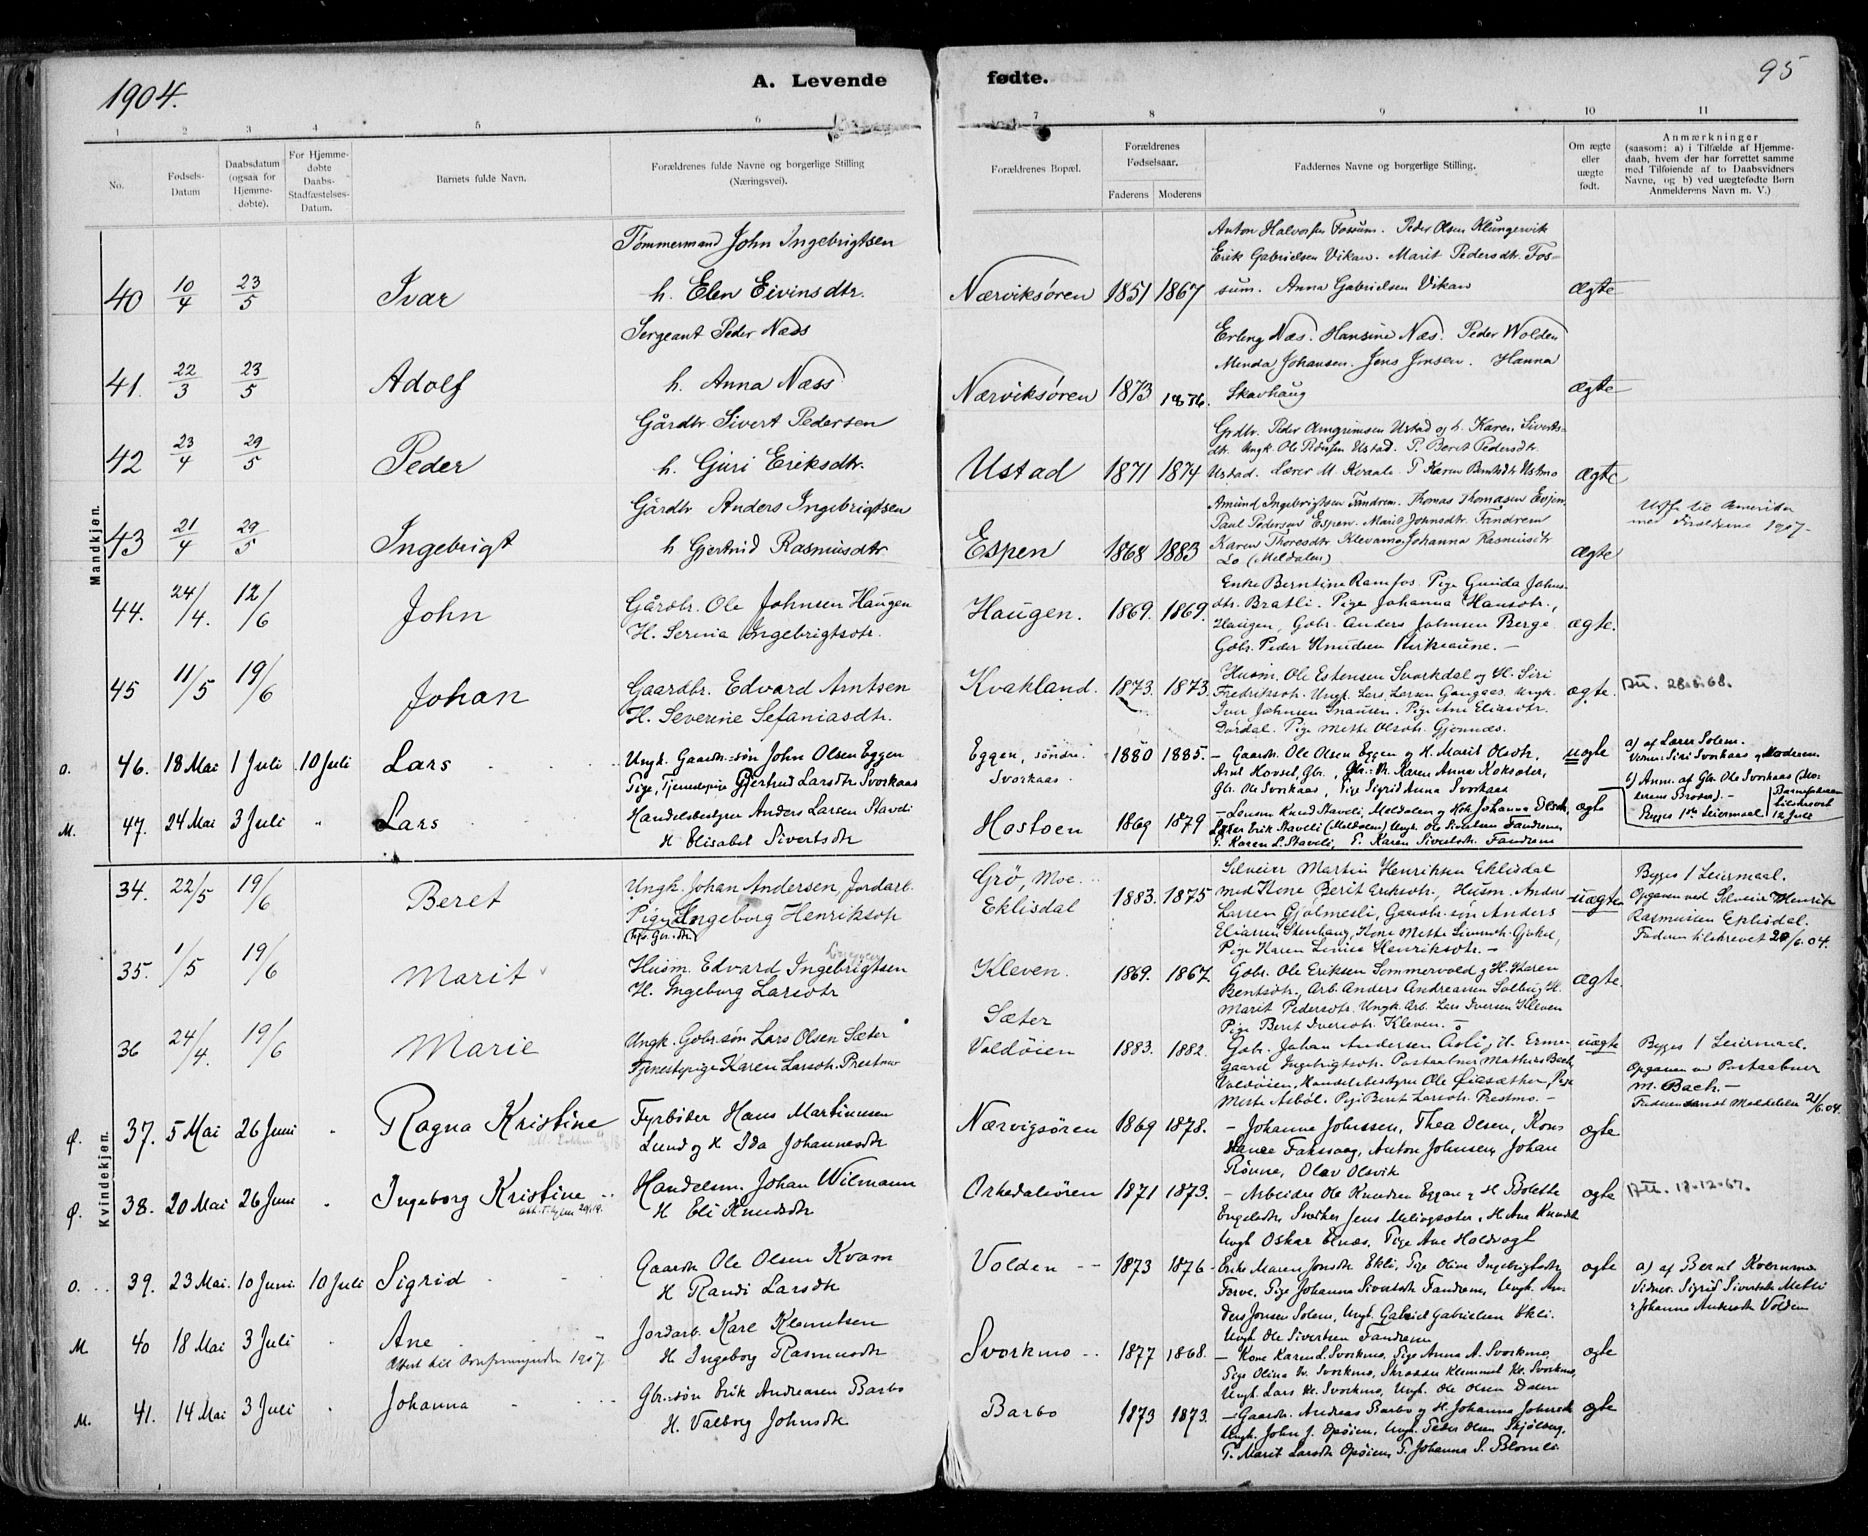 1904.
A. Levende
fødte.
95
1
2
3
4
5
6
7
8
9
10
11
No.
Fødsels-
Datum
Daabsdatum
(ogsaa for
Hjemme-
døbte).
For Hjemme-
døbte
Daabs-
Stadfæstelses-
Datum.
Barnets fulde Navn.
Forældrenes fulde Navne og borgerlige Stilling
(Næringsvei).
Forældrenes Bopæl.
Forældrenes
Fødselsaar.
Faderens
Moderens
Faddernes Navne og borgerlige Stilling.
Om ægte
eller
uægte
født.
Anmærkninger
(saasom: a) i Tilfælde af Hjemme-
daab, hvem der har forrettet samme
med Tilføiende af to Daabsvidners
Navne, og b) ved uægtefødte Børn
Anmelderens Navn m. V.)
Mandkjøn.
Tømmermand John Ingebrigtsen
Anton Halvorsen Fossum. Peder Olsen Klungervik
Erik Gabrielsen Vikan. Marit Pedersdtr. Fos-
40 10/4 23/5 Ivar h. Elen Eivinsdtr. Nærviksøren 1851 1867 sum. Anna Gabrielsen Vikan ægte
Sergeant Peder Næss
Erling Næs. Hansine Næs. Peder Wolden
Minda Johansen. Jens Jensen. Hanna
41. 22/3 23/5 Adolf h. Anna Næss Nærviksøren 1873 1876. Skavhaug ægte
Gårdbr. Sivert Pedersen
Grdbr. Peder Arngrimsen Ustad og h. Karen Siverts-
dtr. Ungk. Ole Ustad. P. Beret Pedersdtr.
42 23/4 29/5 Peder h. Guri Eriksdtr. Ustad 1871 1874 Ustad. Lærer M. Kvaale. P. Karen Bentsdtr Ustmo ægte
Gårdbr Anders Ingebrigtsen
Amund Ingebrigtsen Fandrem. Thomas Thomasen Evjen
Paul Pedersen Espen. Marit Johnsdtr. Fandrem
43 21/4 29/5 Ingebrigt h Gjertrud Rasmusdtr Espen 1868 1883 Karen Thoresdtr. Klevamo. Johanna Rasmusdtr
Lo (Meldalen) ægte
Udfl. til Amerika
med Forældrene 1907.
44. 24/4. 12/6 John Gårdbr. Ole Johnsen Haugen Haugen. 1869. 1869. Enke Berntine Ramfos. Pige Gunda Johns-
H. Serina Ingebrigtsdtr.
dtr. Bratli. Pige Johanna Hansdtr.,
Haugen, Gbr. Anders Johnsen Berge ægte.
Gbr. Peder Knudsen Kirkeaune. -
45 11/5 19/6 Johan Gaardbr. Edvard Arntsen Kvakland. 1873. 1873. Husm. Ole Estensen Svorkdal og H. Siri
H. Severine Sefaniasdtr.
Fredriksdtr. Ungk. Lars Larsen Gangaas. Ungk.
Iver Johnsen Snausen. Pige Ane Eliasdtr.
Dørdal. Pige Mette Olsdtr. Gjønnes. ægte.
Att. 28.5.68.
o. 46. 18 Mai 1 Juli 10 Juli Lars Ungk. Gaardbr.søn John Olsen Eggen Eggen, søndre 1880 1885. - Gaardbr. Ole Olsen Eggen og H. Marit Olsdtr, uægte
Pige, Tjenestepige Gjertrud Larsdtr Svorkaas Svorkaas.
Arnt Hovset, Gbr., Gbr. Karen Anna Koksæter,
Gbr Ole Svorkaas, Pige Sigrid Anna Svorkaas
a) af Lærer Solem.
Vidner: Siri Svorkaas og Moderen
b) Anm. af Gbr. Ole Svorkaas (Mo-
derens Broder). -
Begges 1ste Leiermaal
Barnefaderen
tilskrevet
12 Juli
M. 47. 24 Mai 3 Juli Lars Handelsbestyrer Anders Larsen Staveli Hostoen 1869 1879 - Knud Staveli, Meldalen og Johanna Olsdtr, ægte
H Elisabet Sivertsdtr
Lærer Erik Staveli (Meldalen) Ungk. Ole Sivertsen Fandrem
P. Karen L. Staveli, P. Karen Sivertsdtr. Fandrem
Kvindekjøn.
34. 22/5 19/6 Beret Ungk. Johan Andersen, Jordarb. Grø, Moe 1883. 1875 Selveier Martin Henriksen Eklisdal
Pige Ingeborg Henriksdtr Eklisdal
med Kone Berit Eriksdtr, Husm. Anders
Larsen Gjølmesli, Gaardbr.søn Anders
Eliasen Stenhaug, Kone Mette Gjølel,
Pige Karen Lovise Henriksdtr. - uægte
Begges 1 Leiermaal.
Opgaven ved Selveier Henrik
Rasmussen Eklisdal.
Faderen tilskrevet 20/6.04.
35. 1/5 19/6 Marit Husm. Edvard Ingebrigtsen Kleven. 1869. 1867. Gbr. Ole Eriksen Sommervold og H. Karen
H. Ingeborg Larsdtr
Bentsdtr., Arb. Anders Andreassen Solberg H.
Marit Pedersdtr. Ungk. Arb. Lars Iversen Kleven
Pige Beret Iversdtr. Kleven. - ægte.
36 24/4. 19/6 Marie Ungk. Gbr.søn Lars Olsen Sæter Sæter
Tjenestepige Karen Larsdtr. Prestmo Voldøien 1883. 1882. Gbr. Johan Andersen Aasli, H. Erme-
gaard Ingebrigtsdtr. Postaabner Mathias Bach
Voldøien. Handelsbestyrer Ole Øiasæther, Pige
Mette Asbøl. Pige Beret Larsdtr. Prestmo. - uægte
Begges 1 Leiermaal.
Opgaven ved Postaabner
M. Bach. -
Faderen sendt Meddelelse 21/6.04.
Ø. 37. 5 Mai 26 Juni Ragna Kristine Fyrbøder Hans Martinusen Nærvigsøren 1869 1878. - Johanne Johnssen, Thea Olsen, Kons-
Lund og H Ida Johannesdtr
tance Fanssaag, Anton Johnsen, Johan
Rønne, Olav Olsvik ægte
Ø. 38. 20 Mai 26 Juni Ingeborg Kristine Handelsm. Johan Wilmann Orkedalsøren 1871 1873. - Arbeider Ole Knudsen Eggan og H Bolette
H Eli Knudsdtr
Engelsdtr Sæther Jens Melingsæter, H. Ane Knudsdtr
Ungk Oskar Elnæs, Pige Ane Holdvogt ægte
Att. 18.12.67.
o. 39. 23 Mai. 10 Juni 10 Juli Sigrid Gaardbr Ole Olsen Kvam Volden 1873 1876 Enke Maren Jonsdtr Ekli, Pige Olina Ingebrigtsdtr
H Randi Larsdtr
Forve, Pige Johanna Sivertsdtr Fandrem, Ungk. An-
ders Jonsen Solem, Ungk. Gabriel Gabrielsen Ekli.
Ungk Ole Sivertsen Fandrem ægte
a) af Bernt Kvernmo
Vidner. Sigrid Sivertsdtr Melbi
& Johanna Andersdtr Volden
M 40 18 Mai 3 Juli Ane Jordarb. Karl Klemetsen Svorkmo 1877 1868. - Kone Karen L. Svorkmo, Pige Anna A. Svorkmo,
1907.
H Ingeborg Rasmusdtr
Pige Olina Kr. Svorkmo, Skrædder Klemmet Kl. Svorkmo,
Ungk Lars Kl. Svorkmo, Ungk. Ole Olsen Dalen ægte
M. 41. 14 Mai 3 Juli Johanna Gbr.søn Erik Andreasen Barbo Barbo 1873 1873. - Gaardbr. Andreas Barbo og H. Johanna Johnsdtr
H. Valborg Johnsdtr
Ungk. John J. Opøien, Ungk. Peder Olsen Skjølberg,
P. Marit Larsdtr Opøien, P. Johanna S. Blomli ægte